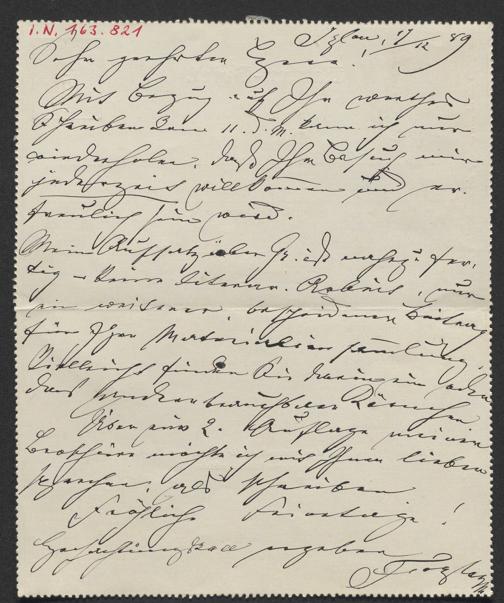 I.N. 163.821
Iglau, 17/12 89
Sehr geehrter Herr!
Mit Bezug auf Ihr werthes
Schreiben vom 11. d. M. kann ich nur
wiederholen, daß Ihr Besuch mir
jederzeit willkommen und er-
freulich sein wird.
Mein Aufsatz über Gr. ist nahezu fer-
tig – keine literar. Arbeit, nur
ein weiterer, bescheidener Beitrag
für Ihre Materialiensammlung.
Vielleicht finden Sie darin ein oder
das andere brauchbare Körnchen.
Über eine 2. Auflage meiner
Broschüre möchte ich mit Ihnen lieber
sprechen, als schreiben.
Fröhliche Feiertage!
Hochachtungsvoll ergeben